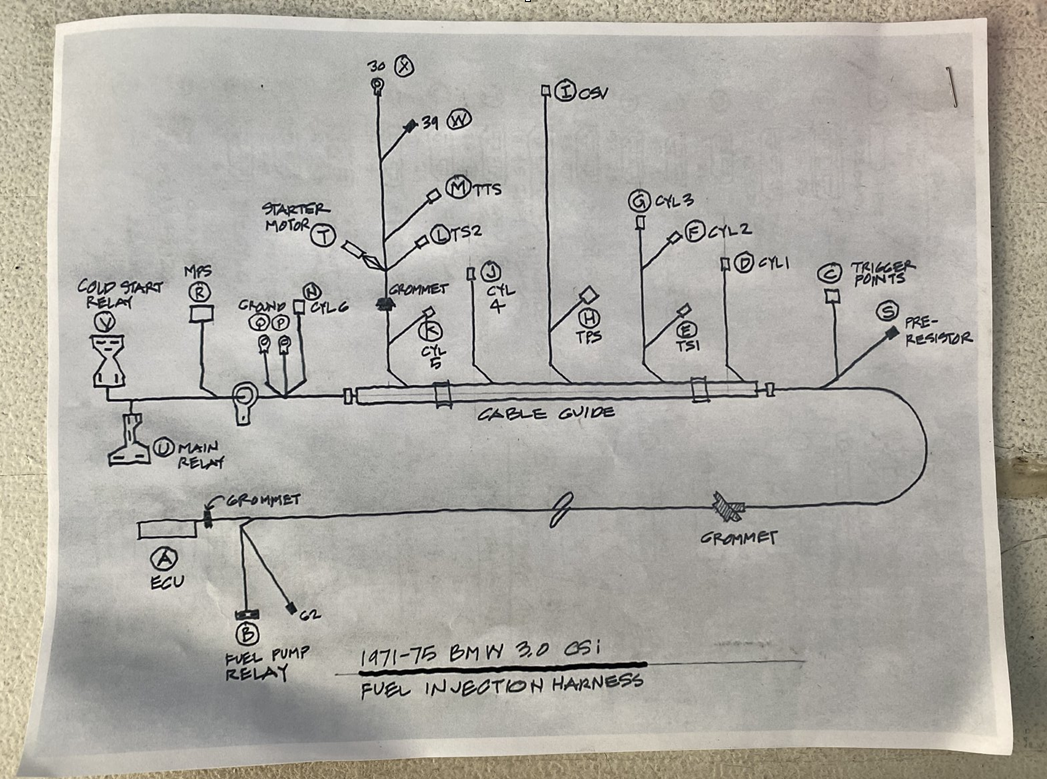 30 X
39 W
I CSV
M TTS
G CYL 3
STARTER
MOTOR T
L TS2
F CYL 2
MPS
R
COLD START
RELAY
V
GROUND
Q P
N
CYL 6
GROMMET
J
CYL
4
D CYL 1
C TRIGGER
POINTS
S
PRE-
RESISTOR
K
CYL
5
H
TPS
E
TS1
CABLE GUIDE
U MAIN
RELAY
GROMMET
GROMMET
A
ECU
62
B
FUEL PUMP
RELAY
1971-75 BMW 3.0 CSi
FUEL INJECTION HARNESS